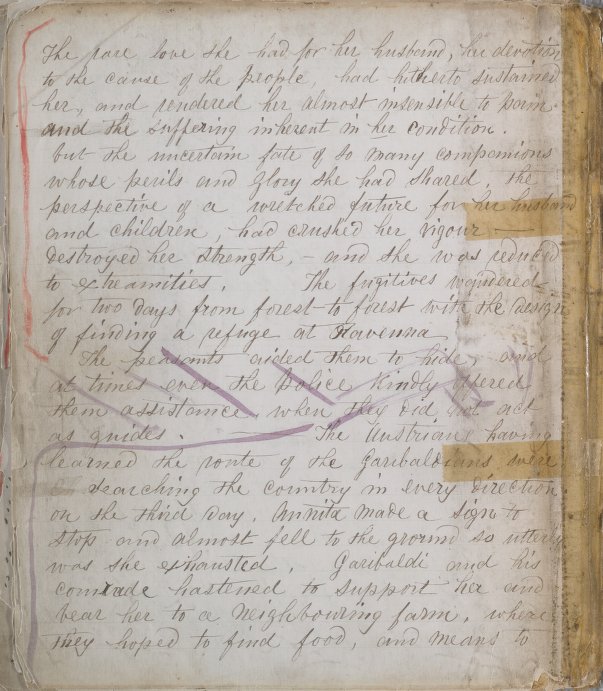 The rare love she had for her husband, her devotion
to the cause of the people, had hitherto sustained
her, and rendered her almost insensible to pain
and the suffering inherent in her condition.
but the uncertain fate of so many companions
whose perils and glory she had shared, the
perspective of a wretched future for her husband
and children, had crushed her vigour —
destroyed her strength, – and she was reduced
to extreamities. The fugitives wandered
for two days from forest to forest with the design
of finding a refuge at Ravenna
The peasants aided them to hide, and
at times even the Police kindly offered
them assistance when they did not act
as guides. — The Austrians having
learned the route of the Garibaldians were
searching the country in every direction.
on the third day, Annita made a sign to
stop and almost fell to the ground so utterly
was she exhausted. Garibaldi and his
comrade hastened to support her and
bear her to a neighbouring farm, where
they hoped to find food, and means to